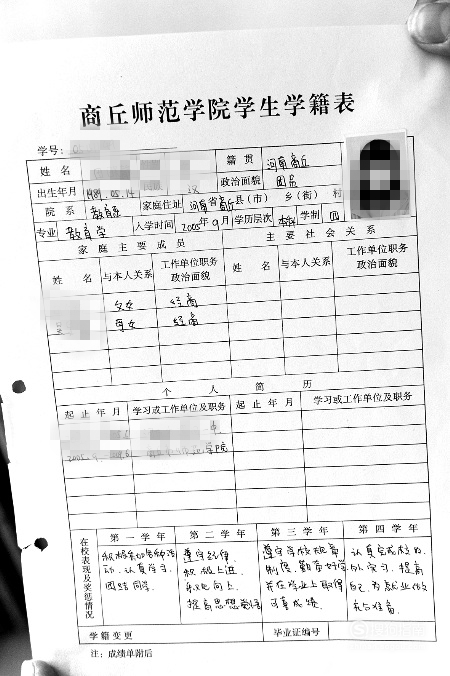 商丘师范学院学生学籍表
学号:
姓名 籍贯 河南商丘
出生年月 1984.05.14 民族 汉 政治面貌 团员
院系 教育系 家庭住址 河南省商丘县(市) 乡(街) 村
专业 教育学 入学时间 2005年9月 学历层次 本科 学制 四
家庭主要成员 主要社会关系
姓名 与本人关系 工作单位职务政治面貌 姓名 与本人关系 工作单位职务政治面貌
父女 经商
母女 经商
个人简历
起止年月 学习或工作单位及职务 起止年月 学习或工作单位及职务
学院
在校表现及奖惩情况
第一学年 第二学年 第三学年 第四学年
积极参加各种活动、认真学习、团结同学。
遵守纪律 积极上进 积极向上 提高思想觉悟
遵守学校规章制度、勤奋好学 并在学业上取得可喜成绩。
认真完成校内外实习、提高自己、为就业做充分准备
学籍变更 毕业证编号
注:成绩单附后